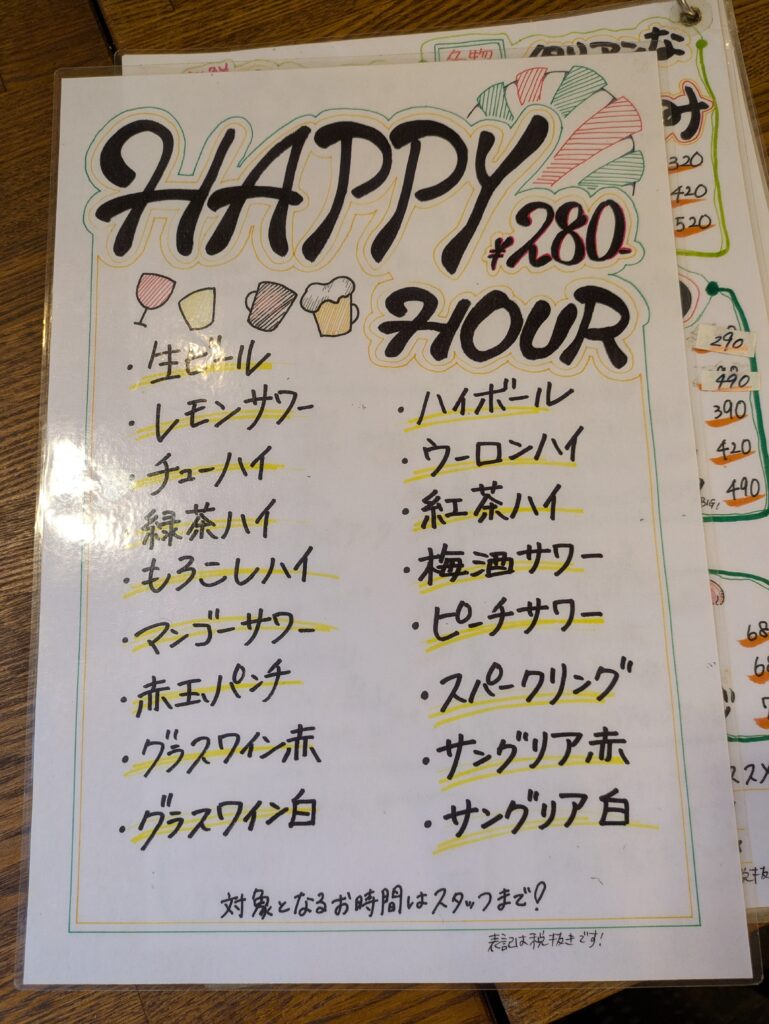 HAPPY
¥280-
HOUR
・生ビール
・レモンサワー
・チューハイ
緑茶ハイ
・もろこしハイ
・マンゴーサワー
・赤玉パンチ
・グラスワイン赤
・グラスワイン白
・ハイボール
・ウーロンハイ
・紅茶ハイ
・梅酒サワー
・ピーチサワー
・スパークリング
・サングリア赤
・サングリア白
対象となるお時間はスタッフまで!
表記は税抜きです!
名物
320
420
520
290
490
390
420
490
BIG!